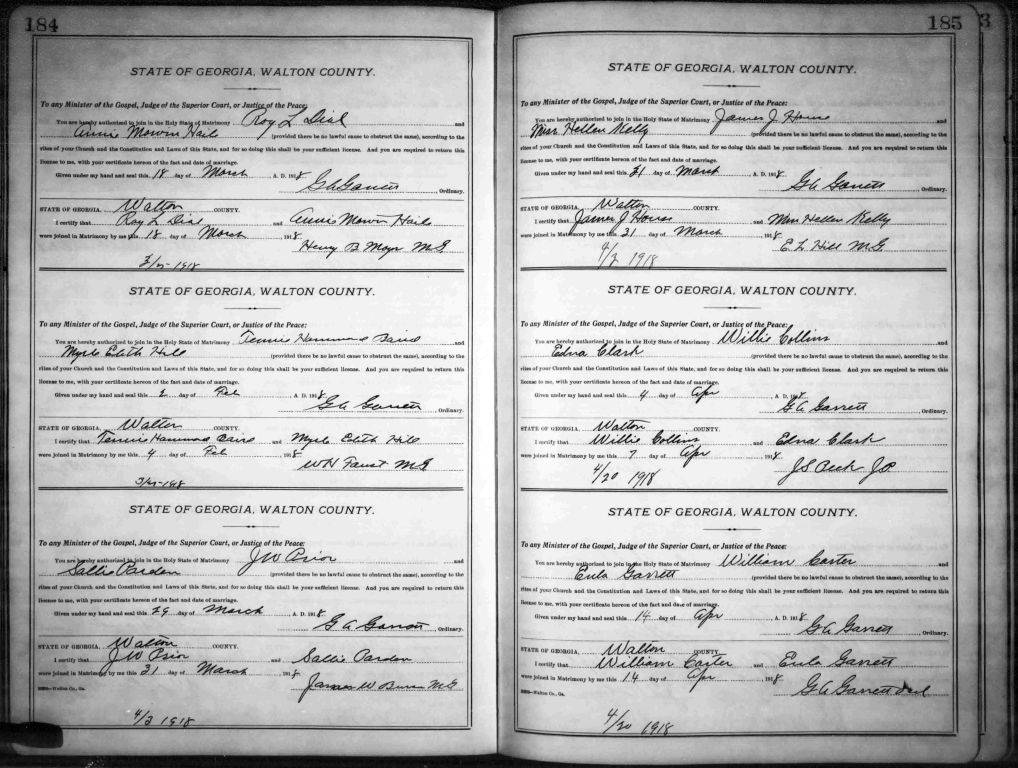 184
STATE OF GEORGIA, WALTON COUNTY.
To any Minister of the Gospel, Judge of the Superior Court, or Justice of the Peace:
You are hereby authorized to join in the Holy State of Matrimony Roy L Dial and
Annie Mowin Hail (provided there be no lawful cause to obstruct the same), according to the
rites of your Church and the Constitution and Laws of this State, and for so doing this shall be your sufficient license. And you are required to return this
license to me, with your certificate hereon of the fact and date of marriage.
Given under my hand and seal this 18 day of March A. D. 1918
G A Garrett, Ordinary.
STATE OF GEORGIA, Walton COUNTY.
I certify that Roy L Dial and Annie Mowin Hail
were joined in Matrimony by me this 18 day of March 1918
Henry B M.G.
1918
STATE OF GEORGIA, WALTON COUNTY.
To any Minister of the Gospel, Judge of the Superior Court, or Justice of the Peace:
You are hereby authorized to join in the Holy State of Matrimony Hammond and
Edith Hill (provided there be no lawful cause to obstruct the same), according to the
rites of your Church and the Constitution and Laws of this State, and for so doing this shall be your sufficient license. And you are required to return this
license to me, with your certificate hereon of the fact and date of marriage.
Given under my hand and seal this 2 day of Feb A. D. 1918
G A Garrett, Ordinary.
STATE OF GEORGIA, Walton COUNTY.
I certify that Hammond and Edith Hill
were joined in Matrimony by me this 4 day of Feb 1918
W H Faust M.G.
1918
STATE OF GEORGIA, WALTON COUNTY.
To any Minister of the Gospel, Judge of the Superior Court, or Justice of the Peace:
You are hereby authorized to join in the Holy State of Matrimony J W Prior and
Sallie Parden (provided there be no lawful cause to obstruct the same), according to the
rites of your Church and the Constitution and Laws of this State, and for so doing this shall be your sufficient license. And you are required to return this
license to me, with your certificate hereon of the fact and date of marriage.
Given under my hand and seal this 29 day of March A. D. 1918
G A Garrett, Ordinary.
STATE OF GEORGIA, Walton COUNTY.
I certify that J W Prior and Sallie Parden
were joined in Matrimony by me this 31 day of March 1918
James W M.G.
Walton Co., Ga.
4/3 1918
185
3
STATE OF GEORGIA, WALTON COUNTY.
To any Minister of the Gospel, Judge of the Superior Court, or Justice of the Peace:
You are hereby authorized to join in the Holy State of Matrimony James J and
Miss Hellen Kelly (provided there be no lawful cause to obstruct the same), according to the
rites of your Church and the Constitution and Laws of this State, and for so doing this shall be your sufficient license. And you are required to return this
license to me, with your certificate hereon of the fact and date of marriage.
Given under my hand and seal this 31 day of March A. D. 1918
G A Garrett, Ordinary.
STATE OF GEORGIA, Walton COUNTY.
I certify that James J and Miss Hellen Kelly
were joined in Matrimony by me this 31 day of March 1918
E. L. Hill M.G.
4/2 1918
STATE OF GEORGIA, WALTON COUNTY.
To any Minister of the Gospel, Judge of the Superior Court, or Justice of the Peace:
You are hereby authorized to join in the Holy State of Matrimony Willie Collins and
Edna Clark (provided there be no lawful cause to obstruct the same), according to the
rites of your Church and the Constitution and Laws of this State, and for so doing this shall be your sufficient license. And you are required to return this
license to me, with your certificate hereon of the fact and date of marriage.
Given under my hand and seal this 4 day of Apr A. D. 1918
G A Garrett, Ordinary.
STATE OF GEORGIA, Walton COUNTY.
I certify that Willie Collins and Edna Clark
were joined in Matrimony by me this 7 day of Apr 1918
J S Peek J.P.
4/20 1918
STATE OF GEORGIA, WALTON COUNTY.
To any Minister of the Gospel, Judge of the Superior Court, or Justice of the Peace:
You are hereby authorized to join in the Holy State of Matrimony William Carter and
Eula Garrett (provided there be no lawful cause to obstruct the same), according to the
rites of your Church and the Constitution and Laws of this State, and for so doing this shall be your sufficient license. And you are required to return this
license to me, with your certificate hereon of the fact and date of marriage.
Given under my hand and seal this 14 day of Apr A. D. 1918
G A Garrett, Ordinary.
STATE OF GEORGIA, Walton COUNTY.
I certify that William Carter and Eula Garrett
were joined in Matrimony by me this 14 day of Apr 1918
G A Garrett Ord
Walton Co., Ga.
4/20 1918